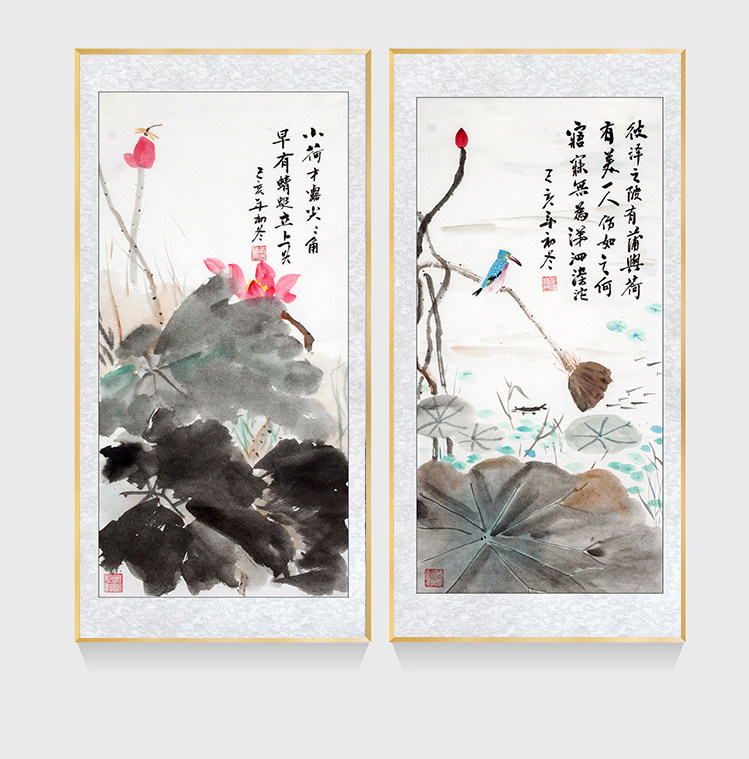 小荷才露尖々角
早有蜻蜓立上头
己亥年初冬
彼泽之陂有蒲與荷
有美一人伤如之何
寤寐無為涕泗滂沱
己亥年初冬